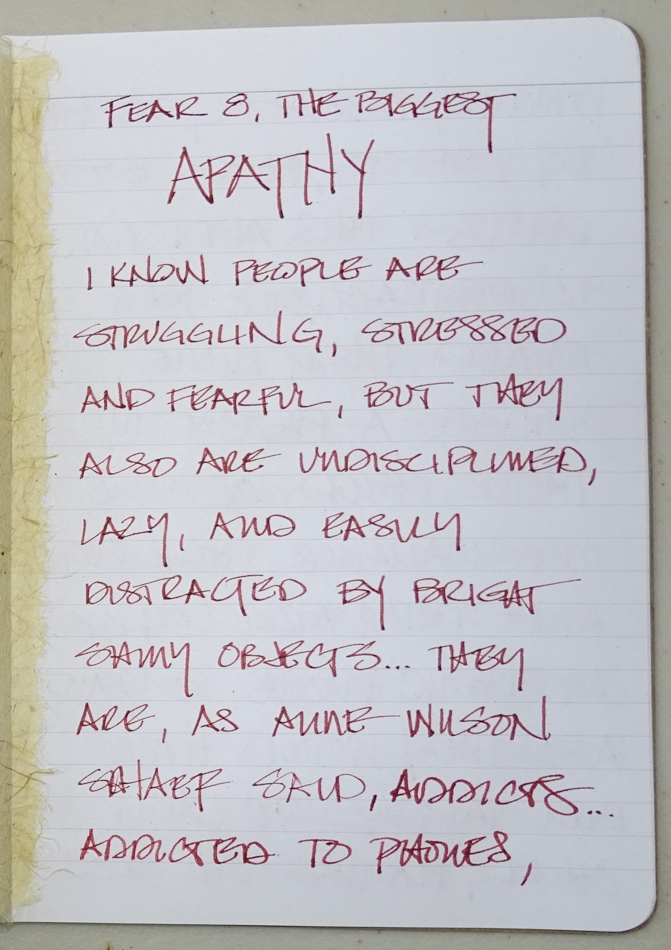 FEAR 8, THE BIGGEST
APATHY
I KNOW PEOPLE ARE
STRUGGLING, STRESSED
AND FEARFUL, BUT THEY
ALSO ARE UNDISCIPLINED,
LAZY, AND EASILY
DISTRACTED BY BRIGHT
SHINY OBJECTS... THEY
ARE, AS ANNE WILSON
SHAEF SAID, ADDICTS...
ADDICTED TO PHONES,